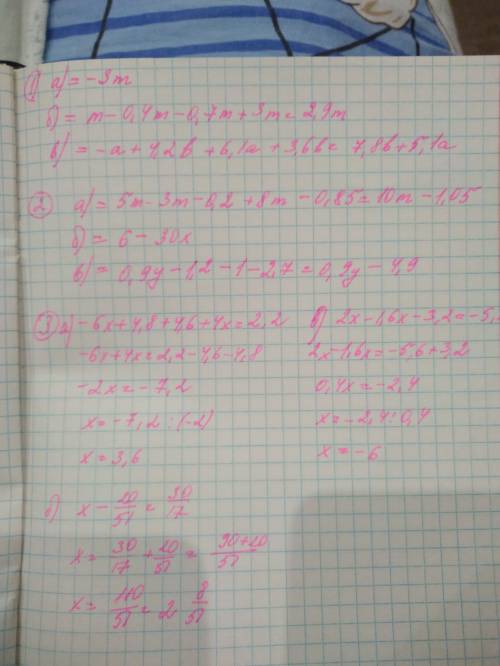 ① а) = -3m
б) = m - 0,4m - 0,7m + 3m = 2,9m
в) = -a + 4,2b + 6,1a + 3,6b = 7,8b + 5,1a
② а) = 5m - 3m - 0,2 + 8m - 0,85 = 10m - 1,05
б) = 6 - 30x
в) = 0,9y - 1,2 - 1 - 2,7 = 0,9y - 4,9
③ а) -6x + 4,8 + 4,6 + 4x = 2,2
-6x + 4x = 2,2 - 4,6 - 4,8
-2x = -7,2
x = -7,2 : (-2)
x = 3,6
в) 2x - 1,6x - 3,2 = -5,
2x - 1,6x = -5,6 + 3,2
0,4x = -2,4
x = -2,4 : 0,4
x = -6
б) x - 20/51 = 30/17
x = 30/17 + 20/51 = 90+20/51
x = 110/51 = 2 8/51